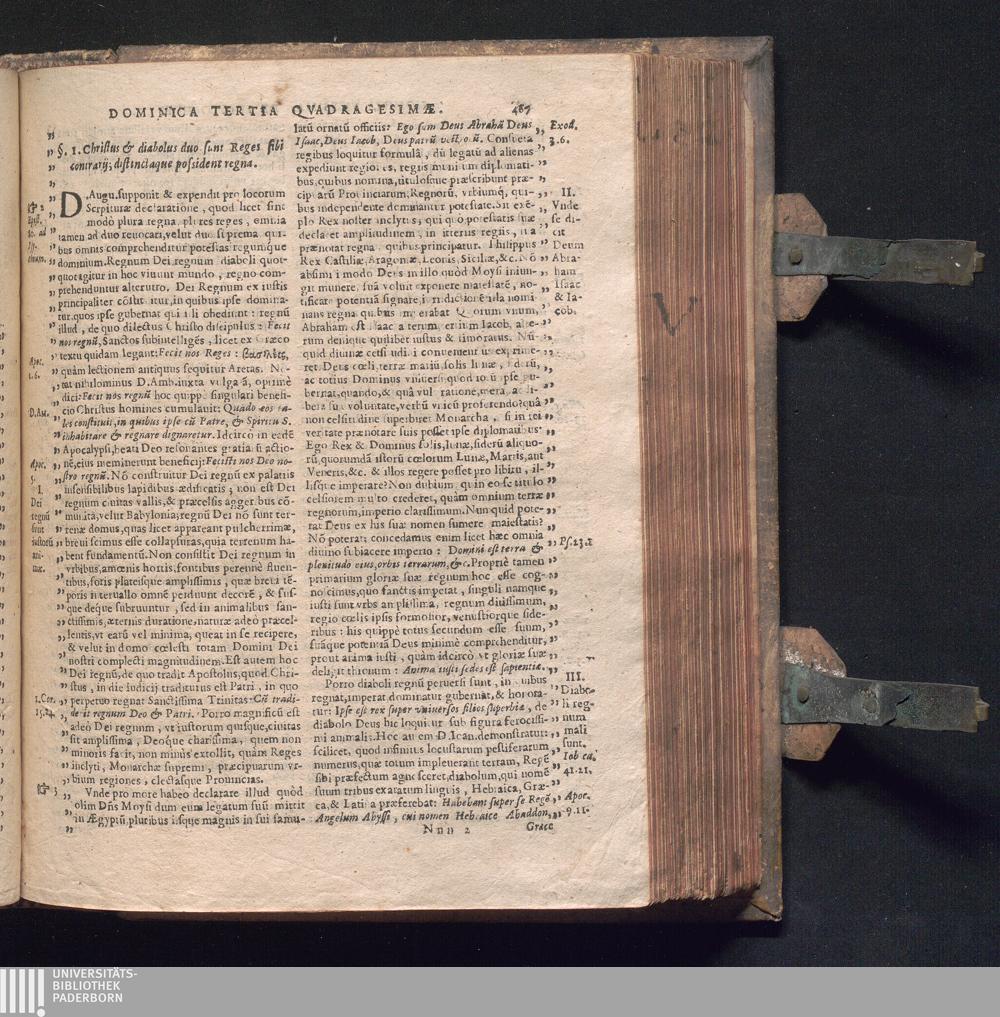 DOMINICA TERTIA QVADRAGESIMÆ. 487
§. 1. Christus & diabolus duo sunt Reges sibi
contrarij, distinctaque possident regna.
D. Augu. supponit & expendit pro locorum
Scripturæ declaratione, quod licet sint
modò plura regna, plures reges, omnia
tamen ad duo reuocari, velut duo suprema qui-
bus omnis comprehenditur potestas regumque
dominium. Regnum Dei regnum diaboli quot-
quot igitur in hoc viuunt mundo, regno com-
prehenduntur alterutro. Dei Regnum ex iustis
principaliter cōstituitur, in quibus ipse domina-
tur, quos ipse gubernat qui illi obediunt: regnū
illud, de quo dilectus Christo discipulus: Fecit
nos regnū, Sanctos subintelligēs, licet ex Græco
textu quidam legant: Fecit nos Reges:
quàm lectionem antiquus sequitur Aretas. No-
tat nihilominus D. Amb. iuxta vulgatā, optimè
dici: Fecit nos regnū hoc quippe singulari benefi-
cio Christus homines cumulauit: Quando eos ta-
les constituit, in quibus ipse cū Patre, & Spiritu S.
inhabitare & regnare dignaretur. Idcircò in eodē
Apocalypsi, beati Deo resonantes gratiarū actio-
nē, eius meminerunt beneficij: Fecisti nos Deo no-
stro regnū. Nō construitur Dei regnū ex palatiis
insensibilibus lapidibus ædificatis; non est Dei
regnum ciuitas vallis, & præcelsis aggeribus cō-
munita, velut Babylonia; regnū Dei nō sunt ter-
renæ domus, quas licet appareant pulcherrimæ,
breui scimus esse collapsuras, quia terrenum ha-
bent fundamentū. Non consistit Dei regnum in
vrbibus, amœnis hortis, fontibus perennè fluen-
tibus, foris plateisque amplissimis, quæ breui tē-
poris interuallo omnē perdunt decorē, & sus-
que deque subruuntur, sed in animalibus san-
ctissimis, æternis duratione, naturæ adeò præcel-
lentis, vt earū vel minima, queat in se recipere,
& velut in domo cœlesti totam Domini Dei
nostri complecti magnitudinem. Est autem hoc
Dei regnū, de quo tradit Apostolus, quod Chri-
stus, in die iudicij traditurus est Patri, in quo
perpetuo regnat Sanctissima Trinitas: Cū tradi-
derit regnum Deo & Patri. Porro magnificū est
adeò Dei regnum, vt iustorum quisque, ciuitas
sit amplissima, Deoque charissima, quem non
minoris facit, non minùs extollit, quàm Reges
inclyti, Monarchæ supremi, præcipuarum vr-
bium regiones, electasque Prouincias.
Vnde pro more habeo declarare illud quòd
olim Dñs Moysi dum eum legatum suū mittit
in Ægyptū, pluribus iisque magnis in sui famu-
Apoc.
1. 6.
D. Am.
Apoc.
5.
I.
Dei
regnū
sunt
iustorū
ani-
mæ.
1. Cor.
15.24.
3
latū ornatū officiis: Ego sum Deus Abrahā Deus
Isaac, Deus Iacob, Deus patrū vestrorū. Consueta
regibus loquitur formulâ, dū legatū ad alienas
expediunt regiones, regiis munitum diplomati-
bus, quibus nomina, titulosque præscribunt præ-
cipuarū Prouinciarum, Regnorū, vrbiumq, qui-
bus independente dominantur potestate. Sit exē-
plo Rex noster inclytus, qui quò potestatis suæ
declaret amplitudinem, in litteris regiis, ita
prænotat regna quibus principatur. Philippus
Rex Castiliæ, Aragoniæ, Leonis, Siciliæ, &c. Nō
absimili modo Deus in illo quòd Moysi iniun-
git munere, suā voluit exponere maiestatē, no-
tificare potentiā signare iurisdictionē illa nomi-
nans regna quibus imperabat Quorum vnum,
Abraham est Isaac alterum, tertium Iacob, alte-
rum denique quilibet iustus & timoratus. Nū-
quid diuinæ celsitudini conueniunt vt exprime-
ret Deus cœli, terræ mariū, solis lunæ, siderū,
ac totius Dominus vniuersi quod totū ipse gu-
bernat, quando, & quâ vult ratione, mera, ac li-
bera sua voluntate, verbū vnicū proferendo? quâ
non celsitudine superbiret Monarcha, si in rei
veritate prænotare suis posset ipse diplomatibus:
Ego Rex & Dominus solis, lunæ, siderū aliquo-
rū, quorumdā istorū cœlorum Lunæ, Martis, aut
Veneris, &c. & illos regere posset pro libitu, il-
lisque imperare? Non dubium, quin eo se titulo
celsiorem multo crederet, quàm omnium terræ
regnorum, imperio clarissimum. Nunquid pote-
rat Deus ex his suæ nomen sumere maiestatis?
Nō poterat: concedamus enim licet hæc omnia
diuino subiacere imperio: Domini est terra &
plenitudo eius, orbis terrarum, &c. Propriè tamen
primarium gloriæ suæ regnum hoc esse cog-
noscimus, quo sanctis imperat, singuli namque
iusti sunt vrbs amplissima, regnum ditissimum,
regio cœlis ipsis formosior, venustiorque side-
ribus: his quippè totus secundum esse suum,
suāque potentiā Deus minimè comprehenditur,
prout anima iusti, quàm idcircò vt gloriæ suæ
delegit thronum: Anima iusti sedes est sapientiæ.
Porro diaboli regnū peruersi sunt, in quibus
regnat, imperat dominatur gubernat, & honora-
tur: Ipse est rex super vniuersos filios superbiæ, de
diabolo Deus hic loquitur sub figura ferocissi-
mi animalis. Hoc autem D. Ioan. demonstratur:
scilicet, quod infinitus locustarum pestiferarum
numerus, quæ totum impleuerant terram, Regē
sibi præfectum agnosceret, diabolum, qui nomē
suum tribus exaratum linguis, Hebraica, Græ-
ca, & Latina præferebat: Habebant super se Regē,
Angelum Abyssi, cui nomen Hebraice Abaddon,
Nnn 2 Græce
Exod.
3.6.
II.
Vnde
se di-
cit
Deum
Abra-
ham
Isaac
& Ia-
cob.
Ps. 23.1
III.
Diabo-
li reg-
num
mali
sunt.
Iob ca.
41.21.
Apoc.
9.11.
V
UNIVERSITÄTS-
BIBLIOTHEK
PADERBORN